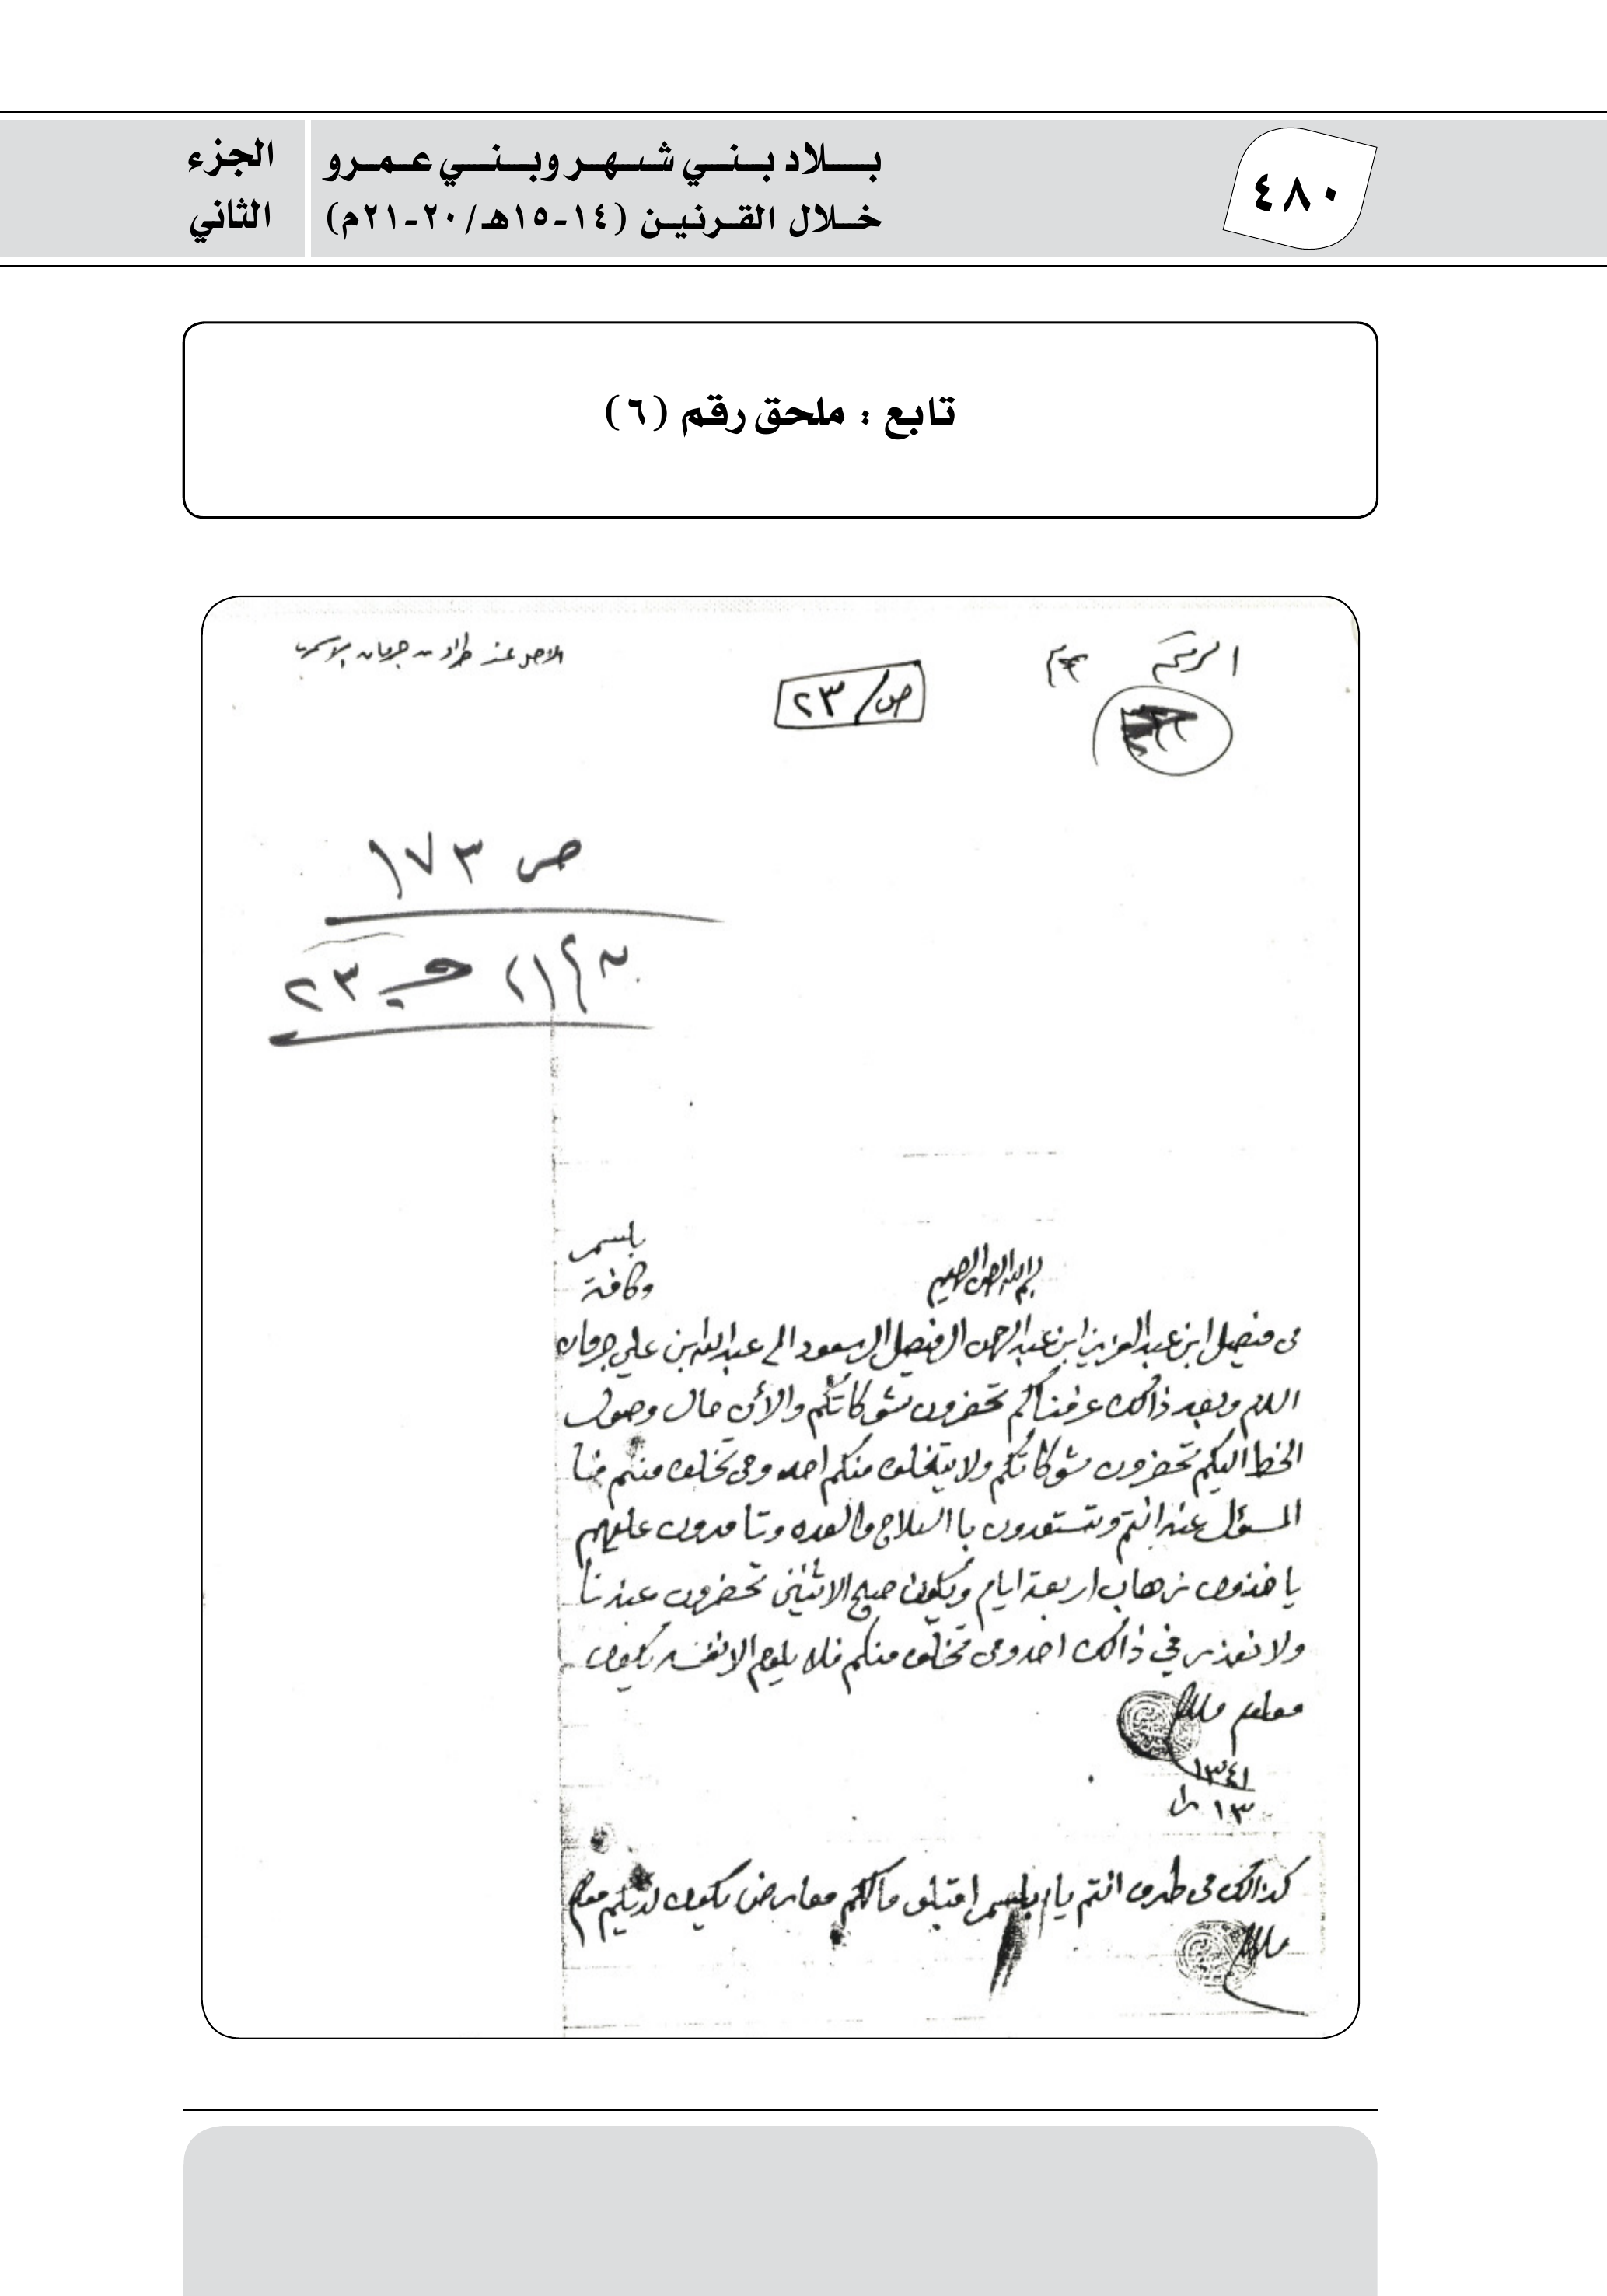 ٤٨٠
بلاد بني شهر وبني عمرو
خلال القرنين (١٤-١٥هـ/٢٠-٢١م)
الجزء
الثاني
تابع : ملحق رقم (٦)
الاصل عند طراد بن جرمان
ص/٢٣
ص ١٧٣
٢٣
بلسمر
وكافة
بسم الله الرحمن الرحيم
من فيصل ابن عبدالعزيز ابن عبدالرحمن ال فيصل ال سعود الى عبدالله ابن علي جرمان
السلام وبعد ذالك عرفناكم تحضرون شوكاتكم والائن حال وصول
الخط اليكم تحضرون شوكاتكم ولا يتخلف منكم احد ومن تخلف منكم فنا
المسؤل عنه انتم وتستعدون باالسلاح والعده وتامدون عليهم
ياخذون زهاب اربعة ايام ويكون صبح الاثنين تحضرون عندنا
ولا نعذر في ذالك احد ومن تخلف منكم فلا يلوم الا نفسه يكون
معلوم والسلام
١٣٤١
١٣ را
كذالك من طرف انتم يا بلسمر مالكم معارض يكون لديكم معلوم
والسلام